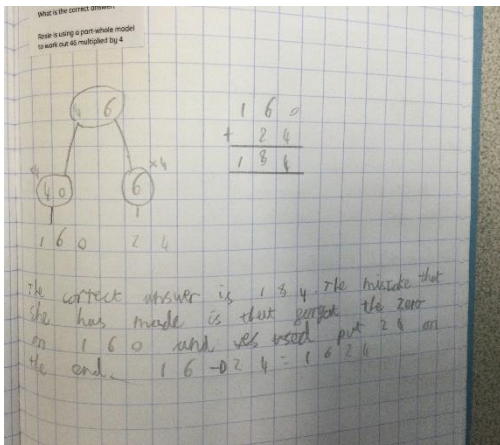 What is the correct answer?
Rosie is using a part-whole model
to work out 46 multiplied by 4
4 6
×4 ×4
40 6
1 6 0 2 4
1 6 0
+ 2 4
1 8 4
The correct answer is 184. The mistake that
she has made is that the zero
on 160 and put 24 on
the end. 16 → 24 = 1624